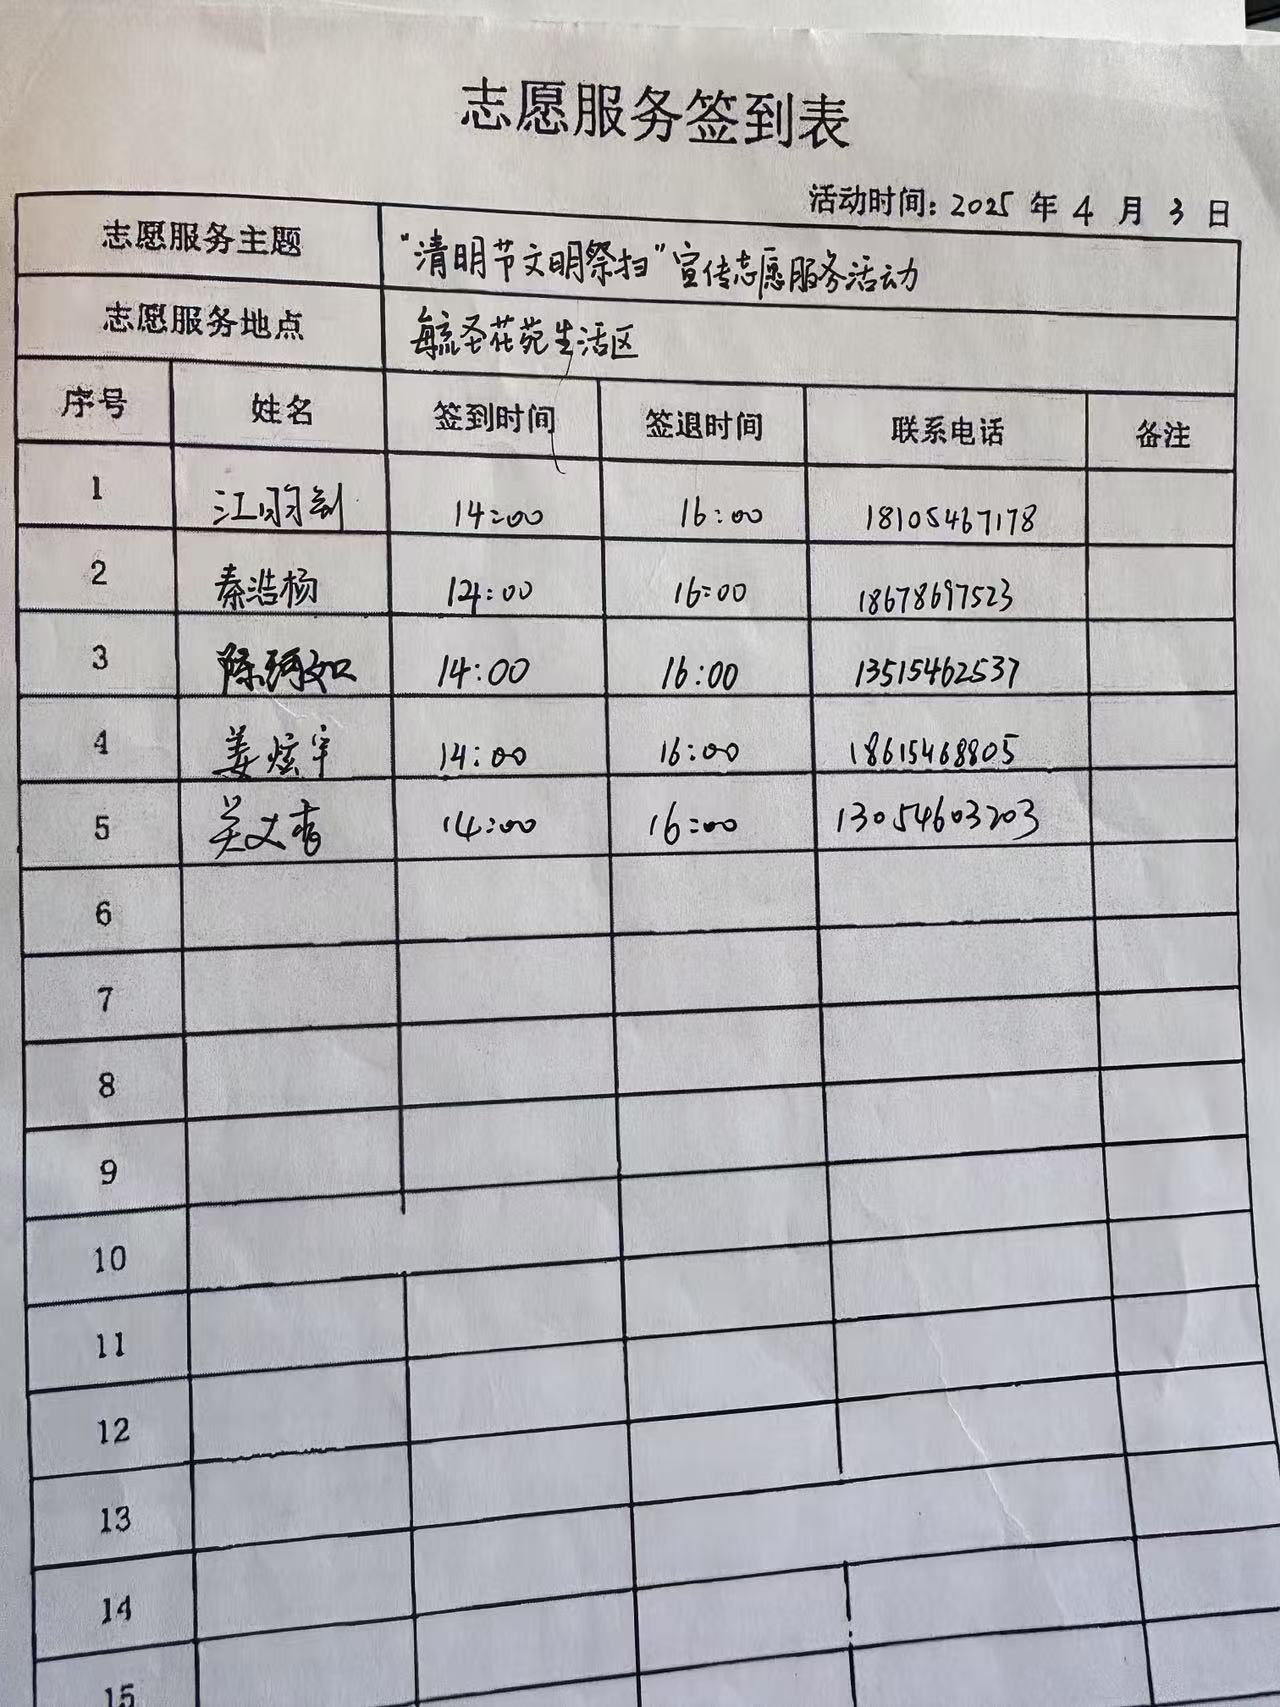 志愿服务签到表
活动时间: 2025 年 4 月 3 日
志愿服务主题 "清明节文明祭扫"宣传志愿服务活动
志愿服务地点 毓圣花苑生活区
序号 姓名 签到时间 签退时间 联系电话 备注
1 江羽 14:00 16:00 18105467178
2 秦浩杨 14:00 16:00 18678697523
3 陈珂如 14:00 16:00 13515462537
4 姜炫宇 14:00 16:00 18615468805
5 吴文青 14:00 16:00 13054603203
6
7
8
9
10
11
12
13
14
15